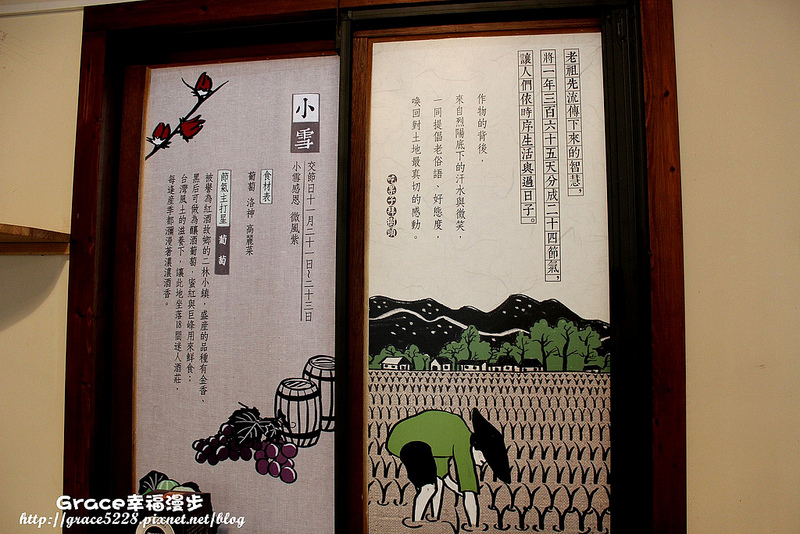 老祖先流傳下來的智慧，
將一年三百六十五天分成二十四節氣，
讓人們依時序生活與過日子。
作物的背後，
來自烈陽底下的汗水與微笑，
一同提倡老俗語、好態度，
喚回對土地最真切的感動。
小雪
交節日十一月二十一日~二十三日
小雪感恩 微風紫
食材表
葡萄 洛神 高麗菜
節氣主打星 葡萄
被譽為紅酒故鄉的二林小鎮，盛產的品種有金香、
黑后可做為釀酒葡萄，蜜紅與巨峰用來鮮食；
台灣風土的滋養下，讓此地坐落18間迷人酒莊，
每逢產季都瀰漫著濃濃酒香。
Grace幸福漫步
http://grace5228.pixnet.net/blog